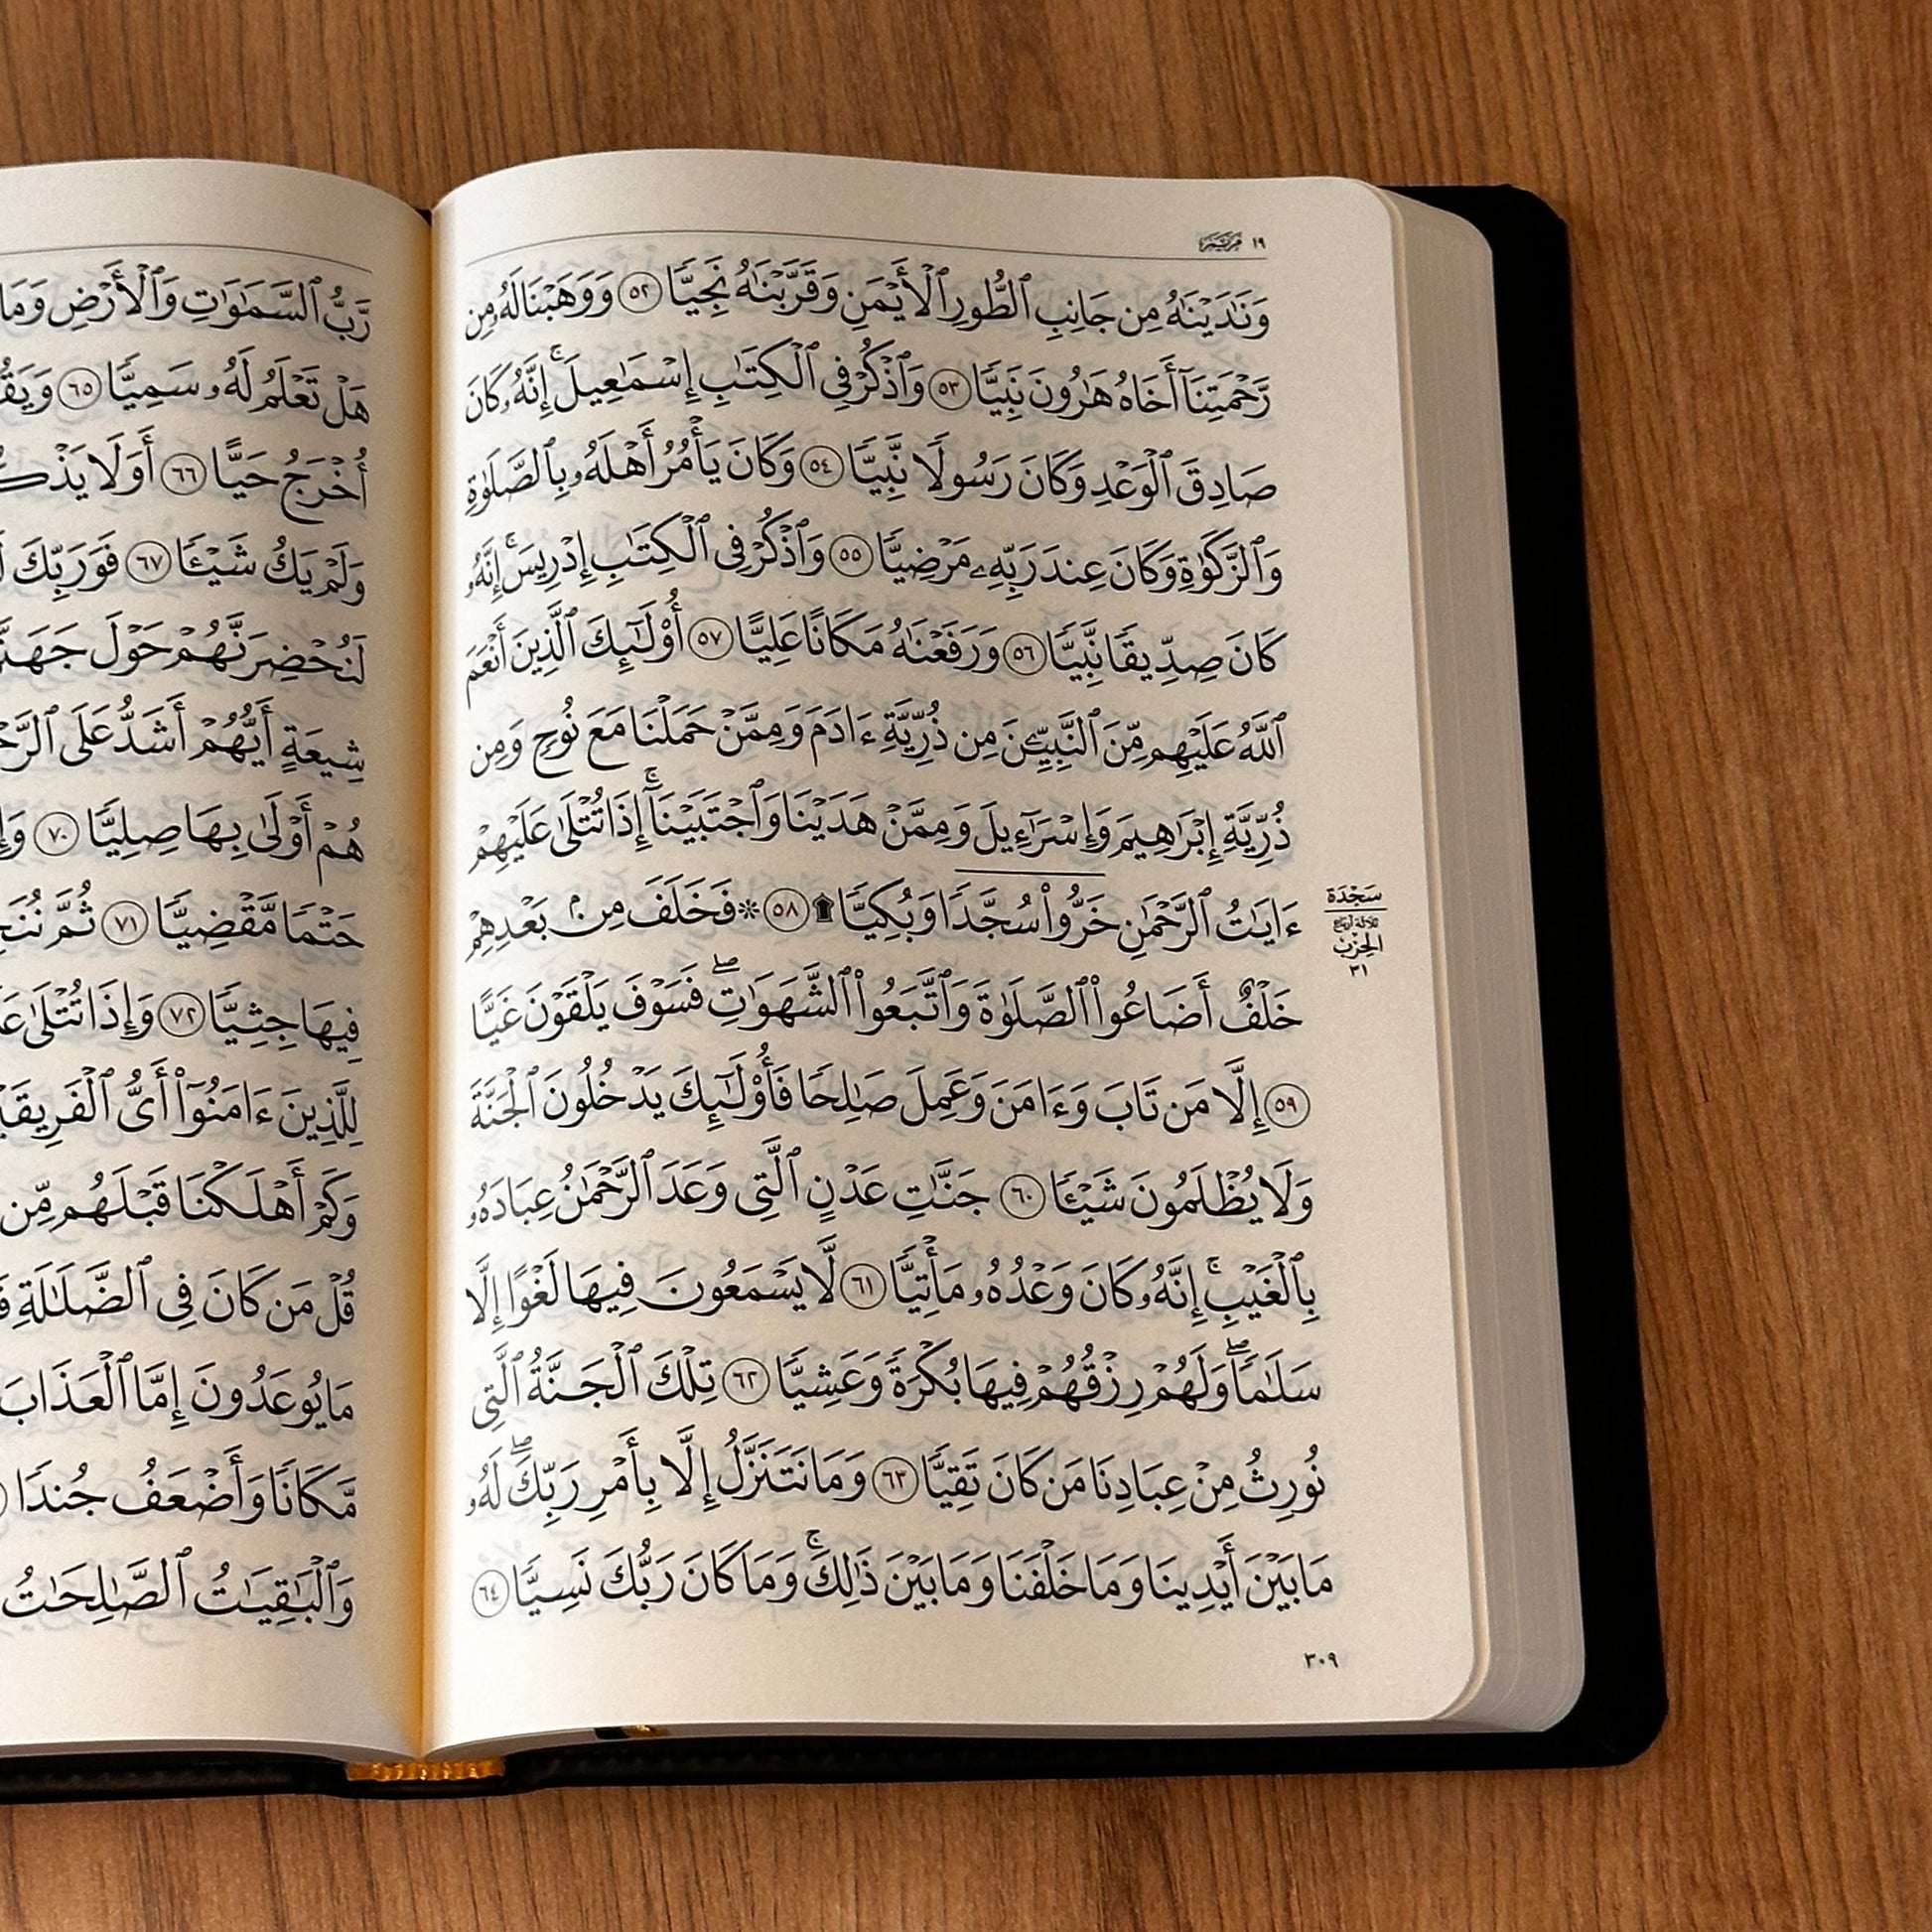 ١٩ مريم
وَنَٰدَيْنَٰهُ مِن جَانِبِ ٱلطُّورِ ٱلْأَيْمَنِ وَقَرَّبْنَٰهُ نَجِيًّا ٥٢ وَوَهَبْنَا لَهُۥ مِن
رَّحْمَتِنَآ أَخَاهُ هَٰرُونَ نَبِيًّا ٥٣ وَٱذْكُرْ فِى ٱلْكِتَٰبِ إِسْمَٰعِيلَۚ إِنَّهُۥ كَانَ
صَادِقَ ٱلْوَعْدِ وَكَانَ رَسُولًا نَّبِيًّا ٥٤ وَكَانَ يَأْمُرُ أَهْلَهُۥ بِٱلصَّلَوٰةِ
وَٱلزَّكَوٰةِ وَكَانَ عِندَ رَبِّهِۦ مَرْضِيًّا ٥٥ وَٱذْكُرْ فِى ٱلْكِتَٰبِ إِدْرِيسَۚ إِنَّهُۥ
كَانَ صِدِّيقًا نَّبِيًّا ٥٦ وَرَفَعْنَٰهُ مَكَانًا عَلِيًّا ٥٧ أُو۟لَٰٓئِكَ ٱلَّذِينَ أَنْعَمَ
ٱللَّهُ عَلَيْهِم مِّنَ ٱلنَّبِيِّـۧنَ مِن ذُرِّيَّةِ ءَادَمَ وَمِمَّنْ حَمَلْنَا مَعَ نُوحٍ وَمِن
ذُرِّيَّةِ إِبْرَٰهِيمَ وَإِسْرَٰٓءِيلَ وَمِمَّنْ هَدَيْنَا وَٱجْتَبَيْنَآۚ إِذَا تُتْلَىٰ عَلَيْهِمْ
ءَايَٰتُ ٱلرَّحْمَٰنِ خَرُّوا۟ سُجَّدًا وَبُكِيًّا ۩ ٥٨ ۞ فَخَلَفَ مِنۢ بَعْدِهِمْ
سَجْدَة
ثلاثة أرباع
الحِزْب
٣١
خَلْفٌ أَضَاعُوا۟ ٱلصَّلَوٰةَ وَٱتَّبَعُوا۟ ٱلشَّهَوَٰتِۖ فَسَوْفَ يَلْقَوْنَ غَيًّا
٥٩ إِلَّا مَن تَابَ وَءَامَنَ وَعَمِلَ صَٰلِحًا فَأُو۟لَٰٓئِكَ يَدْخُلُونَ ٱلْجَنَّةَ
وَلَا يُظْلَمُونَ شَيْـًٔا ٦٠ جَنَّٰتِ عَدْنٍ ٱلَّتِى وَعَدَ ٱلرَّحْمَٰنُ عِبَادَهُۥ
بِٱلْغَيْبِۚ إِنَّهُۥ كَانَ وَعْدُهُۥ مَأْتِيًّا ٦١ لَّا يَسْمَعُونَ فِيهَا لَغْوًا إِلَّا
سَلَٰمًاۖ وَلَهُمْ رِزْقُهُمْ فِيهَا بُكْرَةً وَعَشِيًّا ٦٢ تِلْكَ ٱلْجَنَّةُ ٱلَّتِى
نُورِثُ مِنْ عِبَادِنَا مَن كَانَ تَقِيًّا ٦٣ وَمَا نَتَنَزَّلُ إِلَّا بِأَمْرِ رَبِّكَۖ لَهُۥ
مَا بَيْنَ أَيْدِينَا وَمَا خَلْفَنَا وَمَا بَيْنَ ذَٰلِكَۚ وَمَا كَانَ رَبُّكَ نَسِيًّا ٦٤
٣٠٩
رَّبُّ ٱلسَّمَٰوَٰتِ وَٱلْأَرْضِ وَمَا
هَلْ تَعْلَمُ لَهُۥ سَمِيًّا ٦٥ وَيَقُ
أُخْرَجُ حَيًّا ٦٦ أَوَلَا يَذْكُ
وَلَمْ يَكُ شَيْـًٔا ٦٧ فَوَرَبِّكَ لَ
لَنُحْضِرَنَّهُمْ حَوْلَ جَهَنَّ
شِيعَةٍ أَيُّهُمْ أَشَدُّ عَلَى ٱلرَّحْ
هُمْ أَوْلَىٰ بِهَا صِلِيًّا ٧٠ وَإِ
حَتْمًا مَّقْضِيًّا ٧١ ثُمَّ نُنَجِّ
فِيهَا جِثِيًّا ٧٢ وَإِذَا تُتْلَىٰ عَ
لِلَّذِينَ ءَامَنُوٓا۟ أَىُّ ٱلْفَرِيقَيْ
وَكَمْ أَهْلَكْنَا قَبْلَهُم مِّن
قُلْ مَن كَانَ فِى ٱلضَّلَٰلَةِ فَ
مَا يُوعَدُونَ إِمَّا ٱلْعَذَابَ
مَّكَانًا وَأَضْعَفُ جُندًا
وَٱلْبَٰقِيَٰتُ ٱلصَّٰلِحَٰتُ